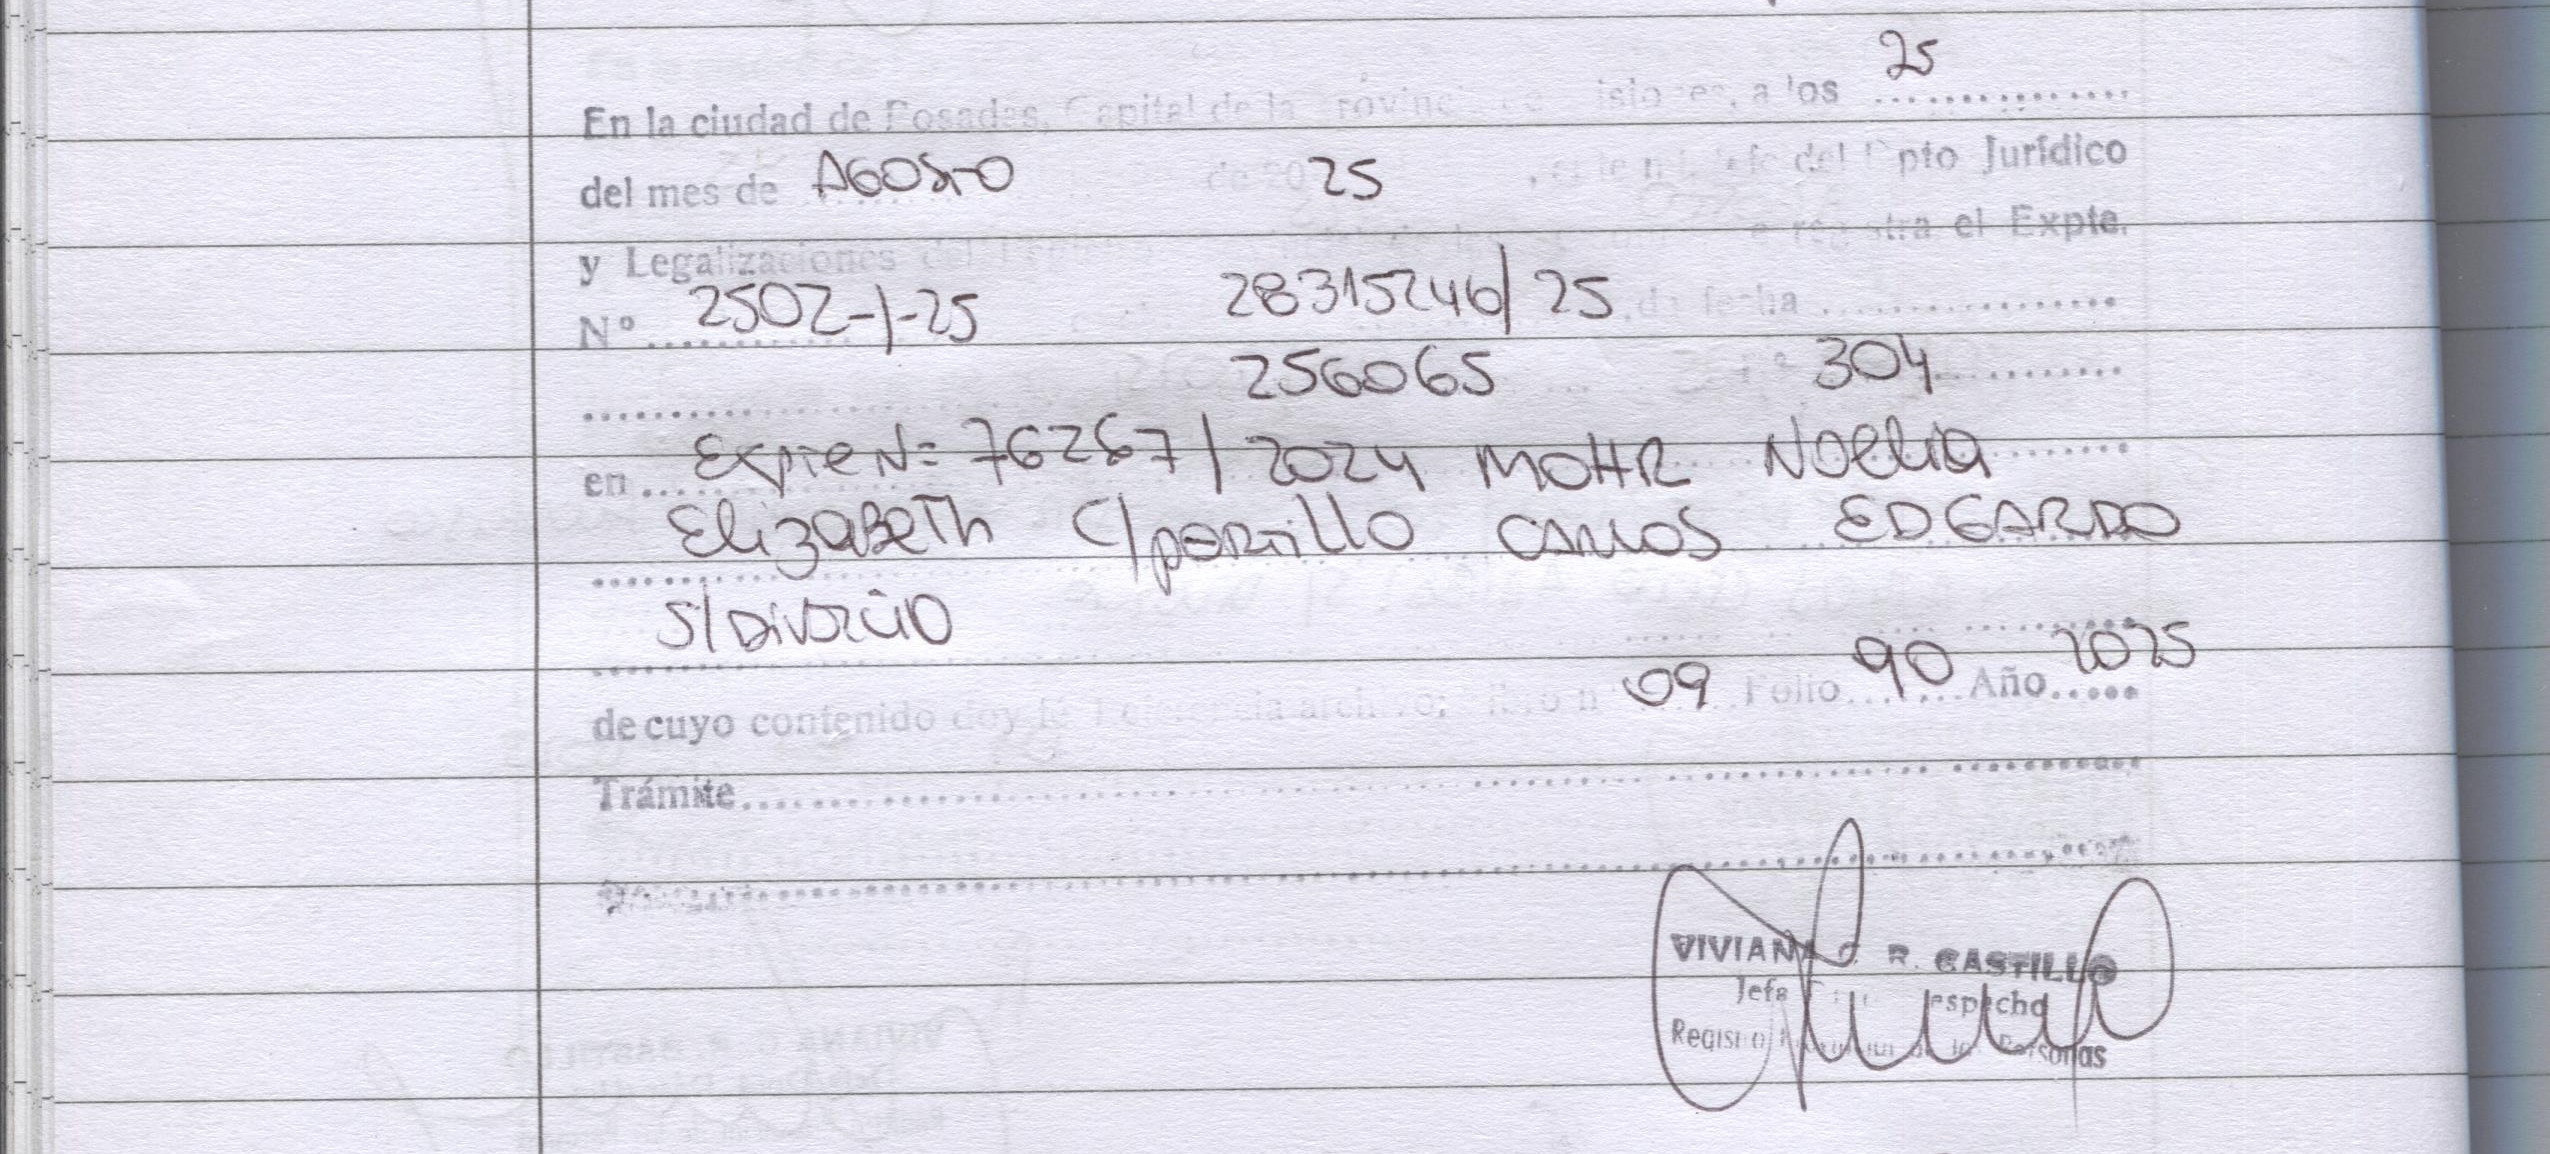 En la ciudad de Posadas, Capital de la Provincia de Misiones, a los 25
del mes de AGOSTO de 2025, ante mi Jefe del Dpto Jurídico
y Legalizaciones del registra el Expte.
Nº 2502-1-25 28315246/25 de fecha
256065 304
en Expte N= 76267/2024 MOHR Noelia
Elizabeth C/portillo CARLOS EDGARDO
S/DIVORCIO
de cuyo contenido doy fé Referencia archivo; libro nº 09 Folio 90 Año 2025
Trámite
VIVIANA C. R. CASTILLO
Jefa Despacho
Registro de las Personas